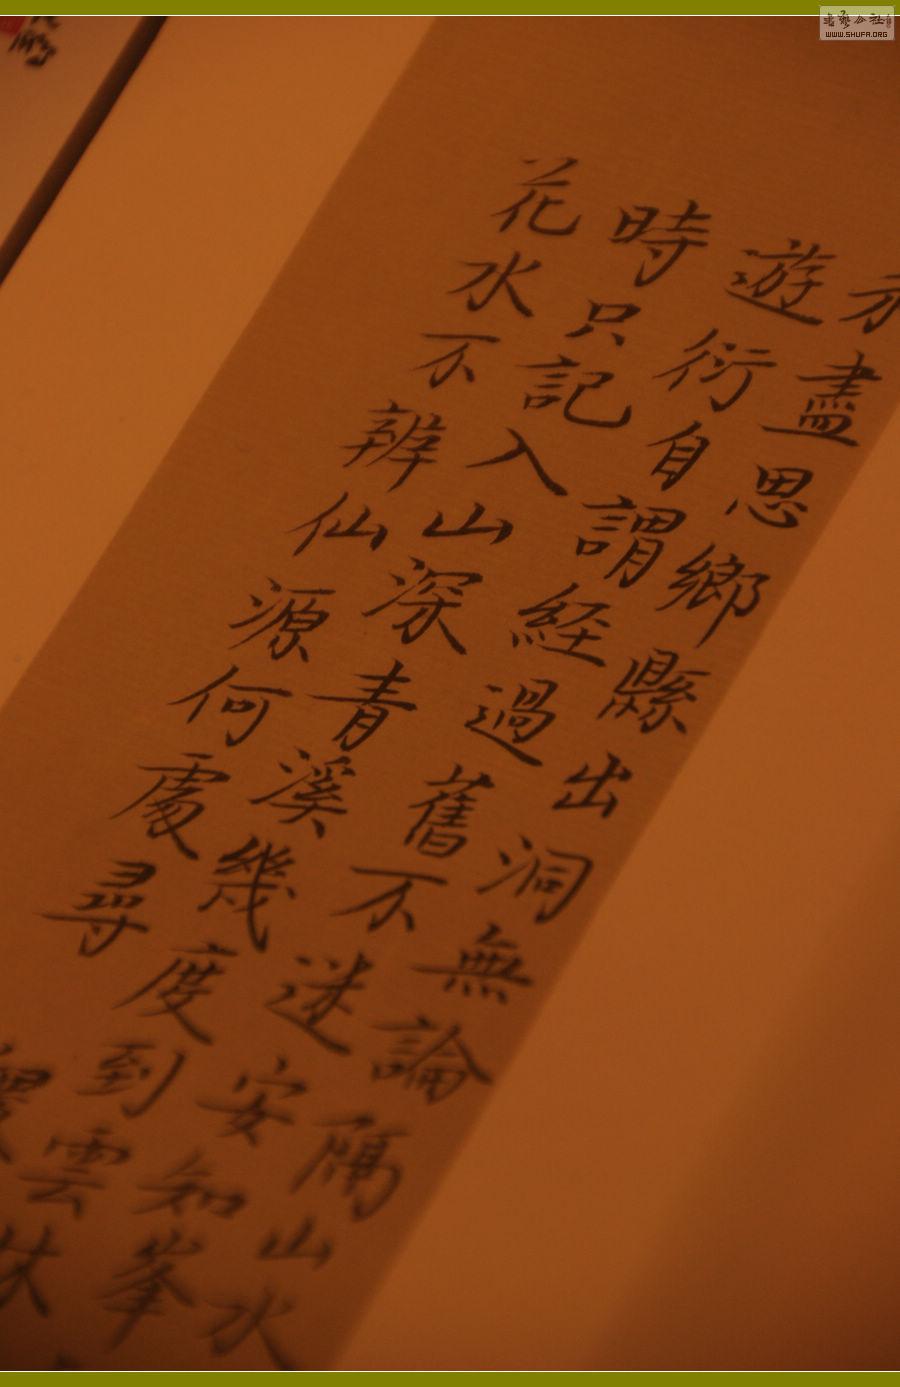 盡思鄉縣出洞無論隔山水
遊衍自謂経過舊不迷安知峯
時只記入山深青溪幾度到雲
花水不辨仙源何處尋
書藝公社
WWW.SHUFA.ORG